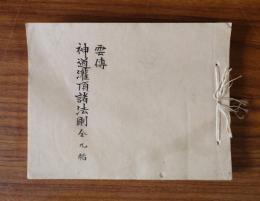 雲傳
神道灌頂諸法則 全九帖